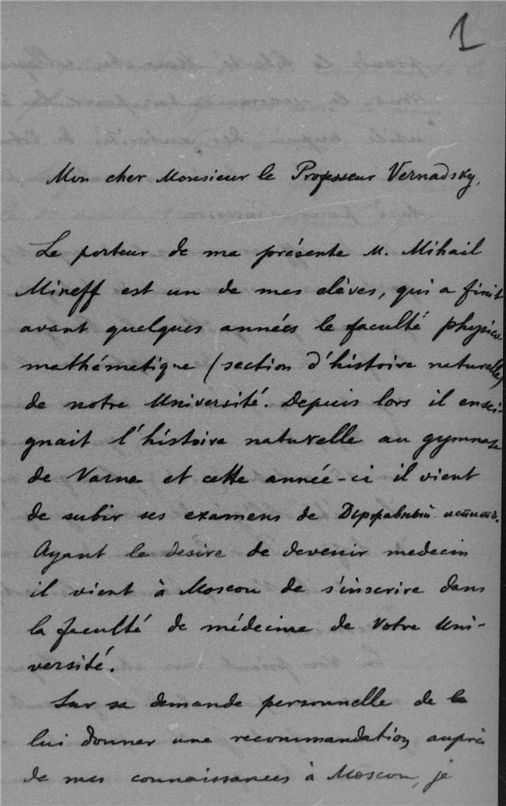 1
Mon cher Monsieur le Professeur Vernadsky,
Le porteur de ma présente M. Mihail
Mineff est un de mes elèves, qui a finit
avant quelques années le faculté physico
mathématique (section d'histoire naturelle)
de notre Université. Depuis lors il ensei-
gnait l'histoire naturelle au gymnase
de Varna et cette année-ci il vient
de subir ses examens de
Ayant le desire de devenir medecin
il vient à Moscou de s'inscrire dans
la faculté de médecine de Votre Uni-
versité.
Sur sa demande personnelle de
lui donner une recommandation auprès
de mes connaissances à Moscou, je